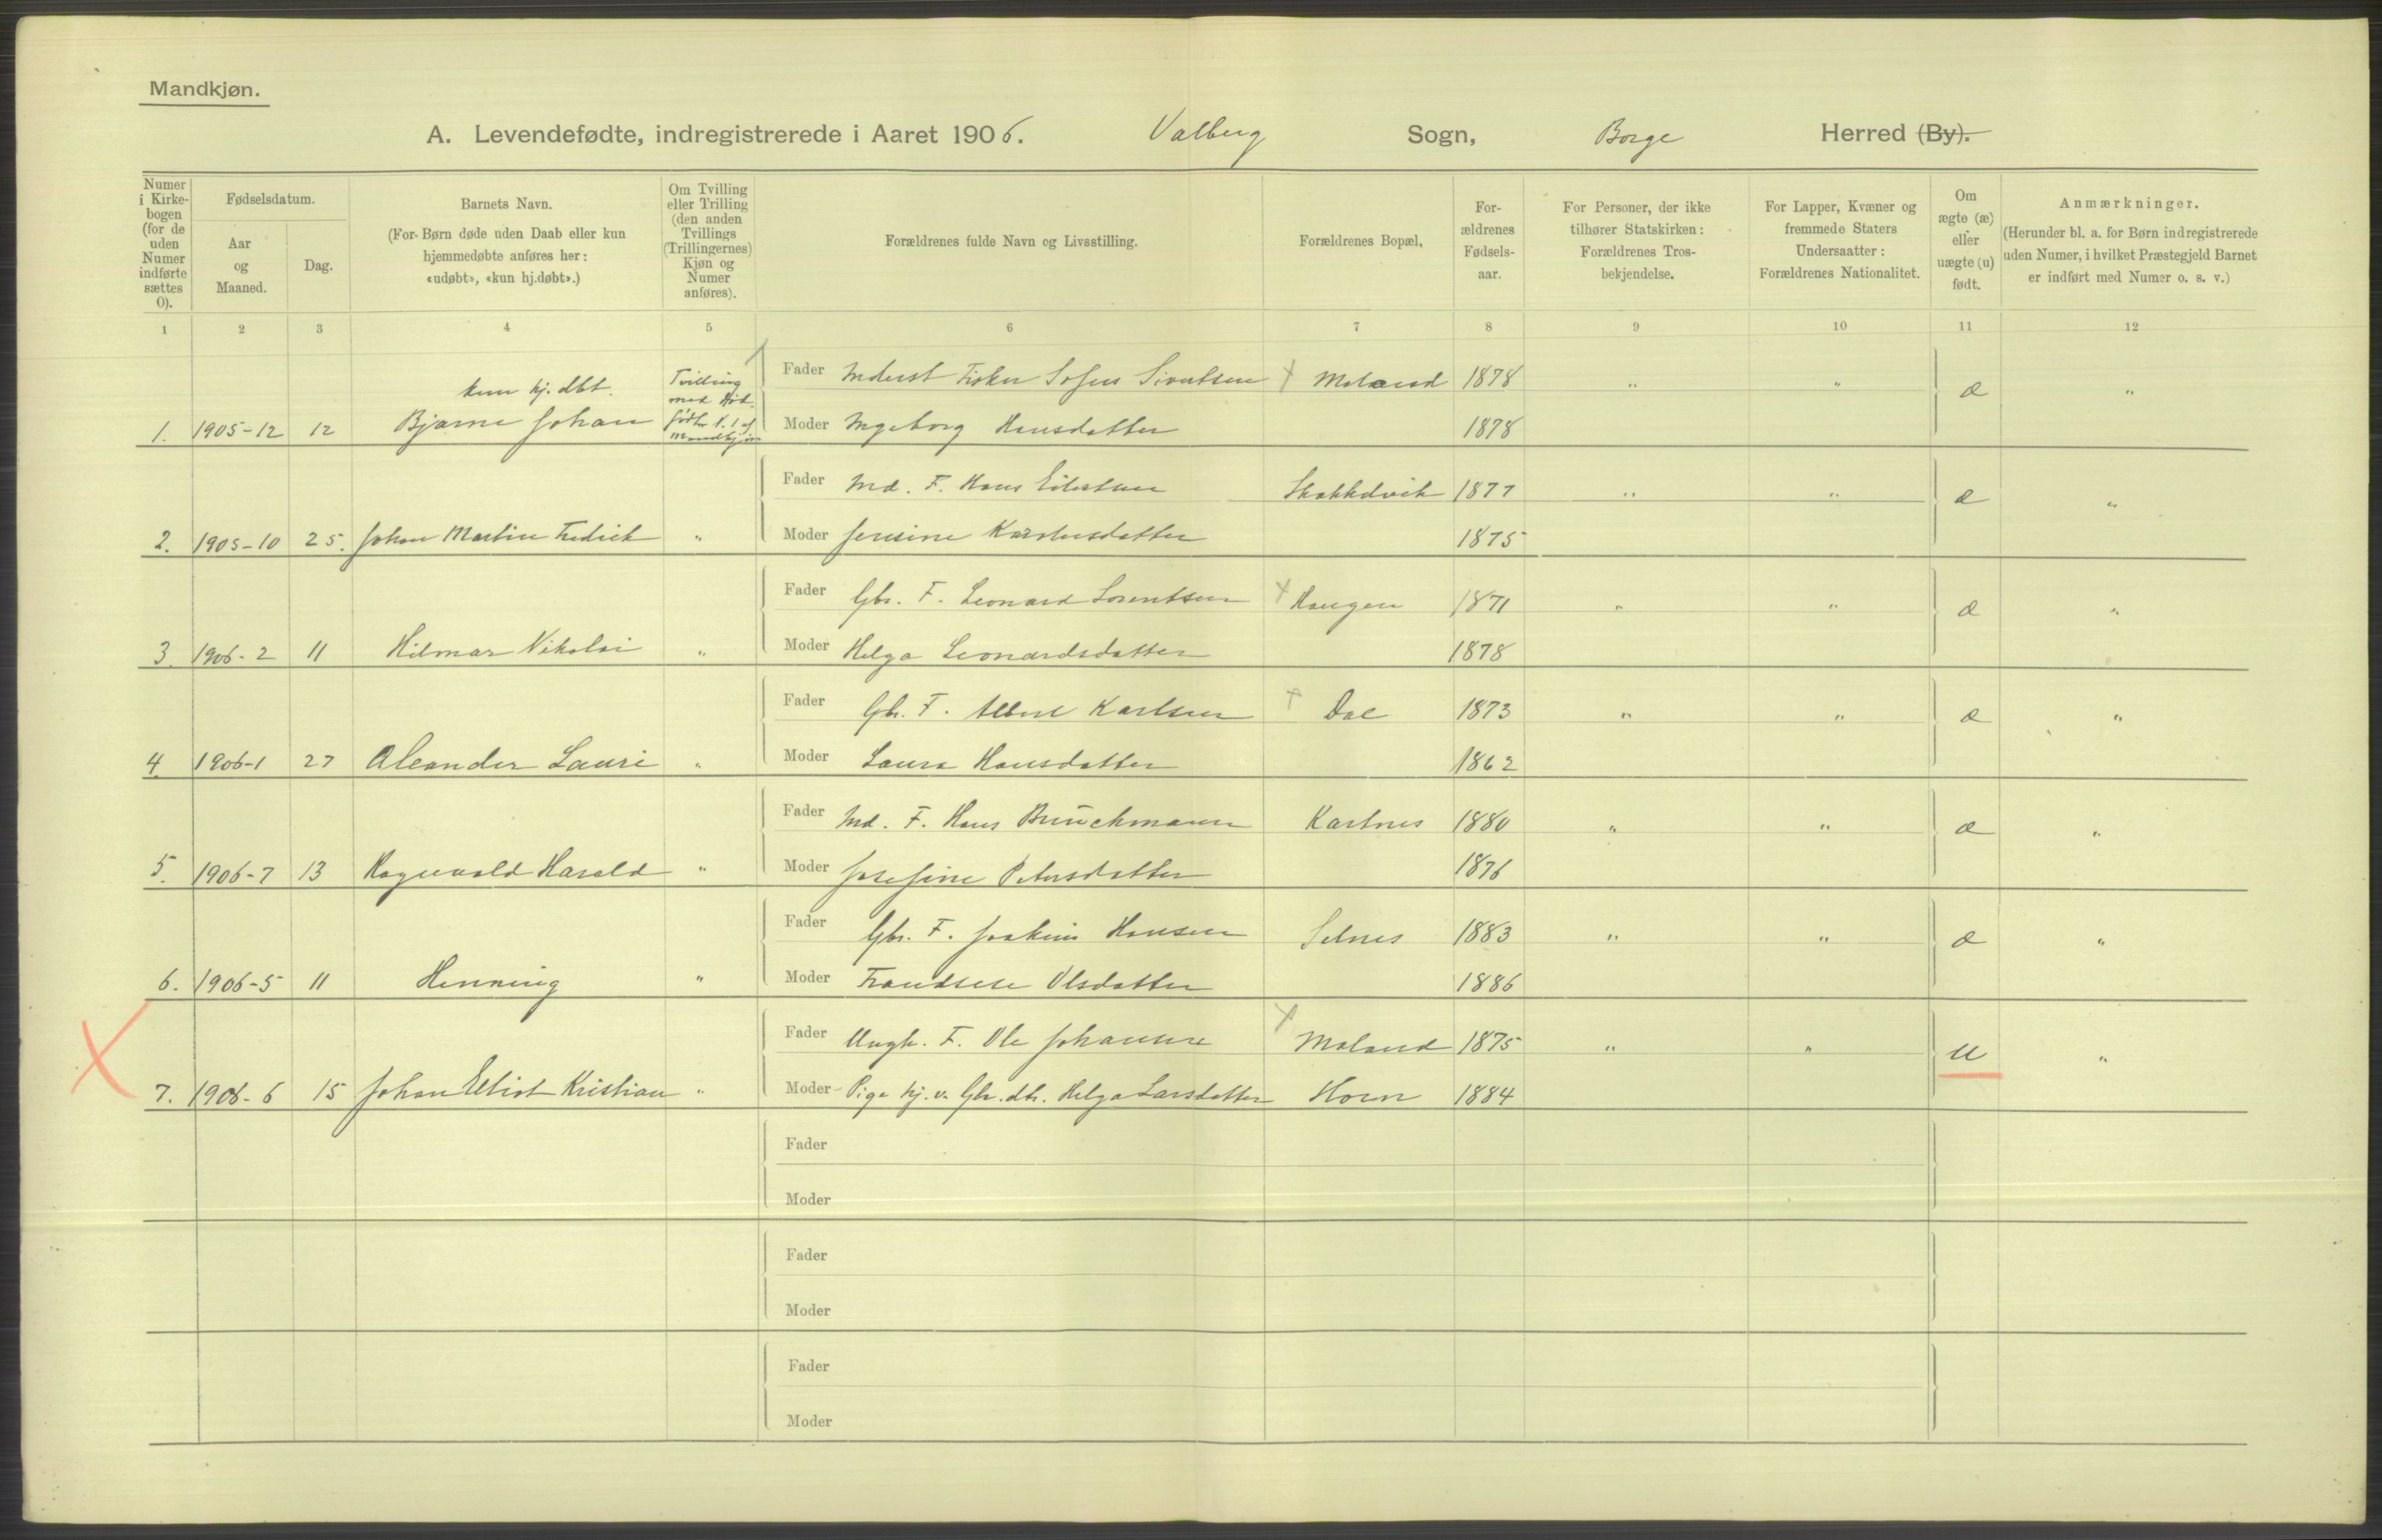 Mandkjøn.
A. Levendefødte, indregistrerede i Aaret 1906. Valberg Sogn, Borge Herred (By).
Numer i Kirkebogen (for de uden Numer indførte sættes 0).
Fødselsdatum.
Aar og Maaned.
Dag.
Barnets Navn.
(For Børn døde uden Daab eller kun hjemmedøbte anføres her: «udøbt», «kun hj.døbt».)
Om Tvilling eller Trilling (den anden Tvillings (Trillingernes) Kjøn og Numer anføres).
Forældrenes fulde Navn og Livsstilling.
Forældrenes Bopæl,
For-ældrenes Fødsels-aar.
For Personer, der ikke tilhører Statskirken: Forældrenes Tros-bekjendelse.
For Lapper, Kvæner og fremmede Staters Undersaatter: Forældrenes Nationalitet.
Om ægte (æ) eller uægte (u) født.
Anmærkninger.
(Herunder bl. a. for Børn indregistrerede uden Numer, i hvilket Præstegjeld Barnet er indført med Numer o. s. v.)
1 2 3 4 5 6 7 8 9 10 11 12
kun hj. dbt. Tvilling med
Fader Inderst Fisker Sofus Sivertsen Moland 1878 " " æ "
1. 1905-12 12 Bjarne Johan Moder Ingeborg Hansdatter 1878
Fader Ind. F. Hans Eilertsen 1877 " " æ "
2. 1905-10 25. Johan Martin Fredrik " Moder Jensine 1875
Fader Gbr. F. Leonard Lorentsen Haugen 1871 " " æ "
3. 1906-2 11 Hilmar Nikolai " Moder Helga Leonardsdatter 1878
Fader Gbr. F. Albert Karlsen Dal 1873 " " æ "
4. 1906-1 27 Aleander Lauri " Moder Laura Hansdatter 1862
Fader Ind. F. Hans Brinchmann Kartnes 1880 " " æ "
5. 1906-7 13 Ragnvald Harald " Moder Josefine Petersdatter 1876
Fader Gbr. F. Joakim Hansen Selnes 1883 " " æ "
6. 1906-5 11 Henning " Moder Olsdatter 1886
Fader Ungk. F. Ole Johansen Moland 1875 " " u "
7. 1906-6 15 Johan Eliot Kristian " Moder Pige hj. v. Gbr. dtr. Helga Larsdatter Horn 1884
Fader
Moder
Fader
Moder
Fader
Moder